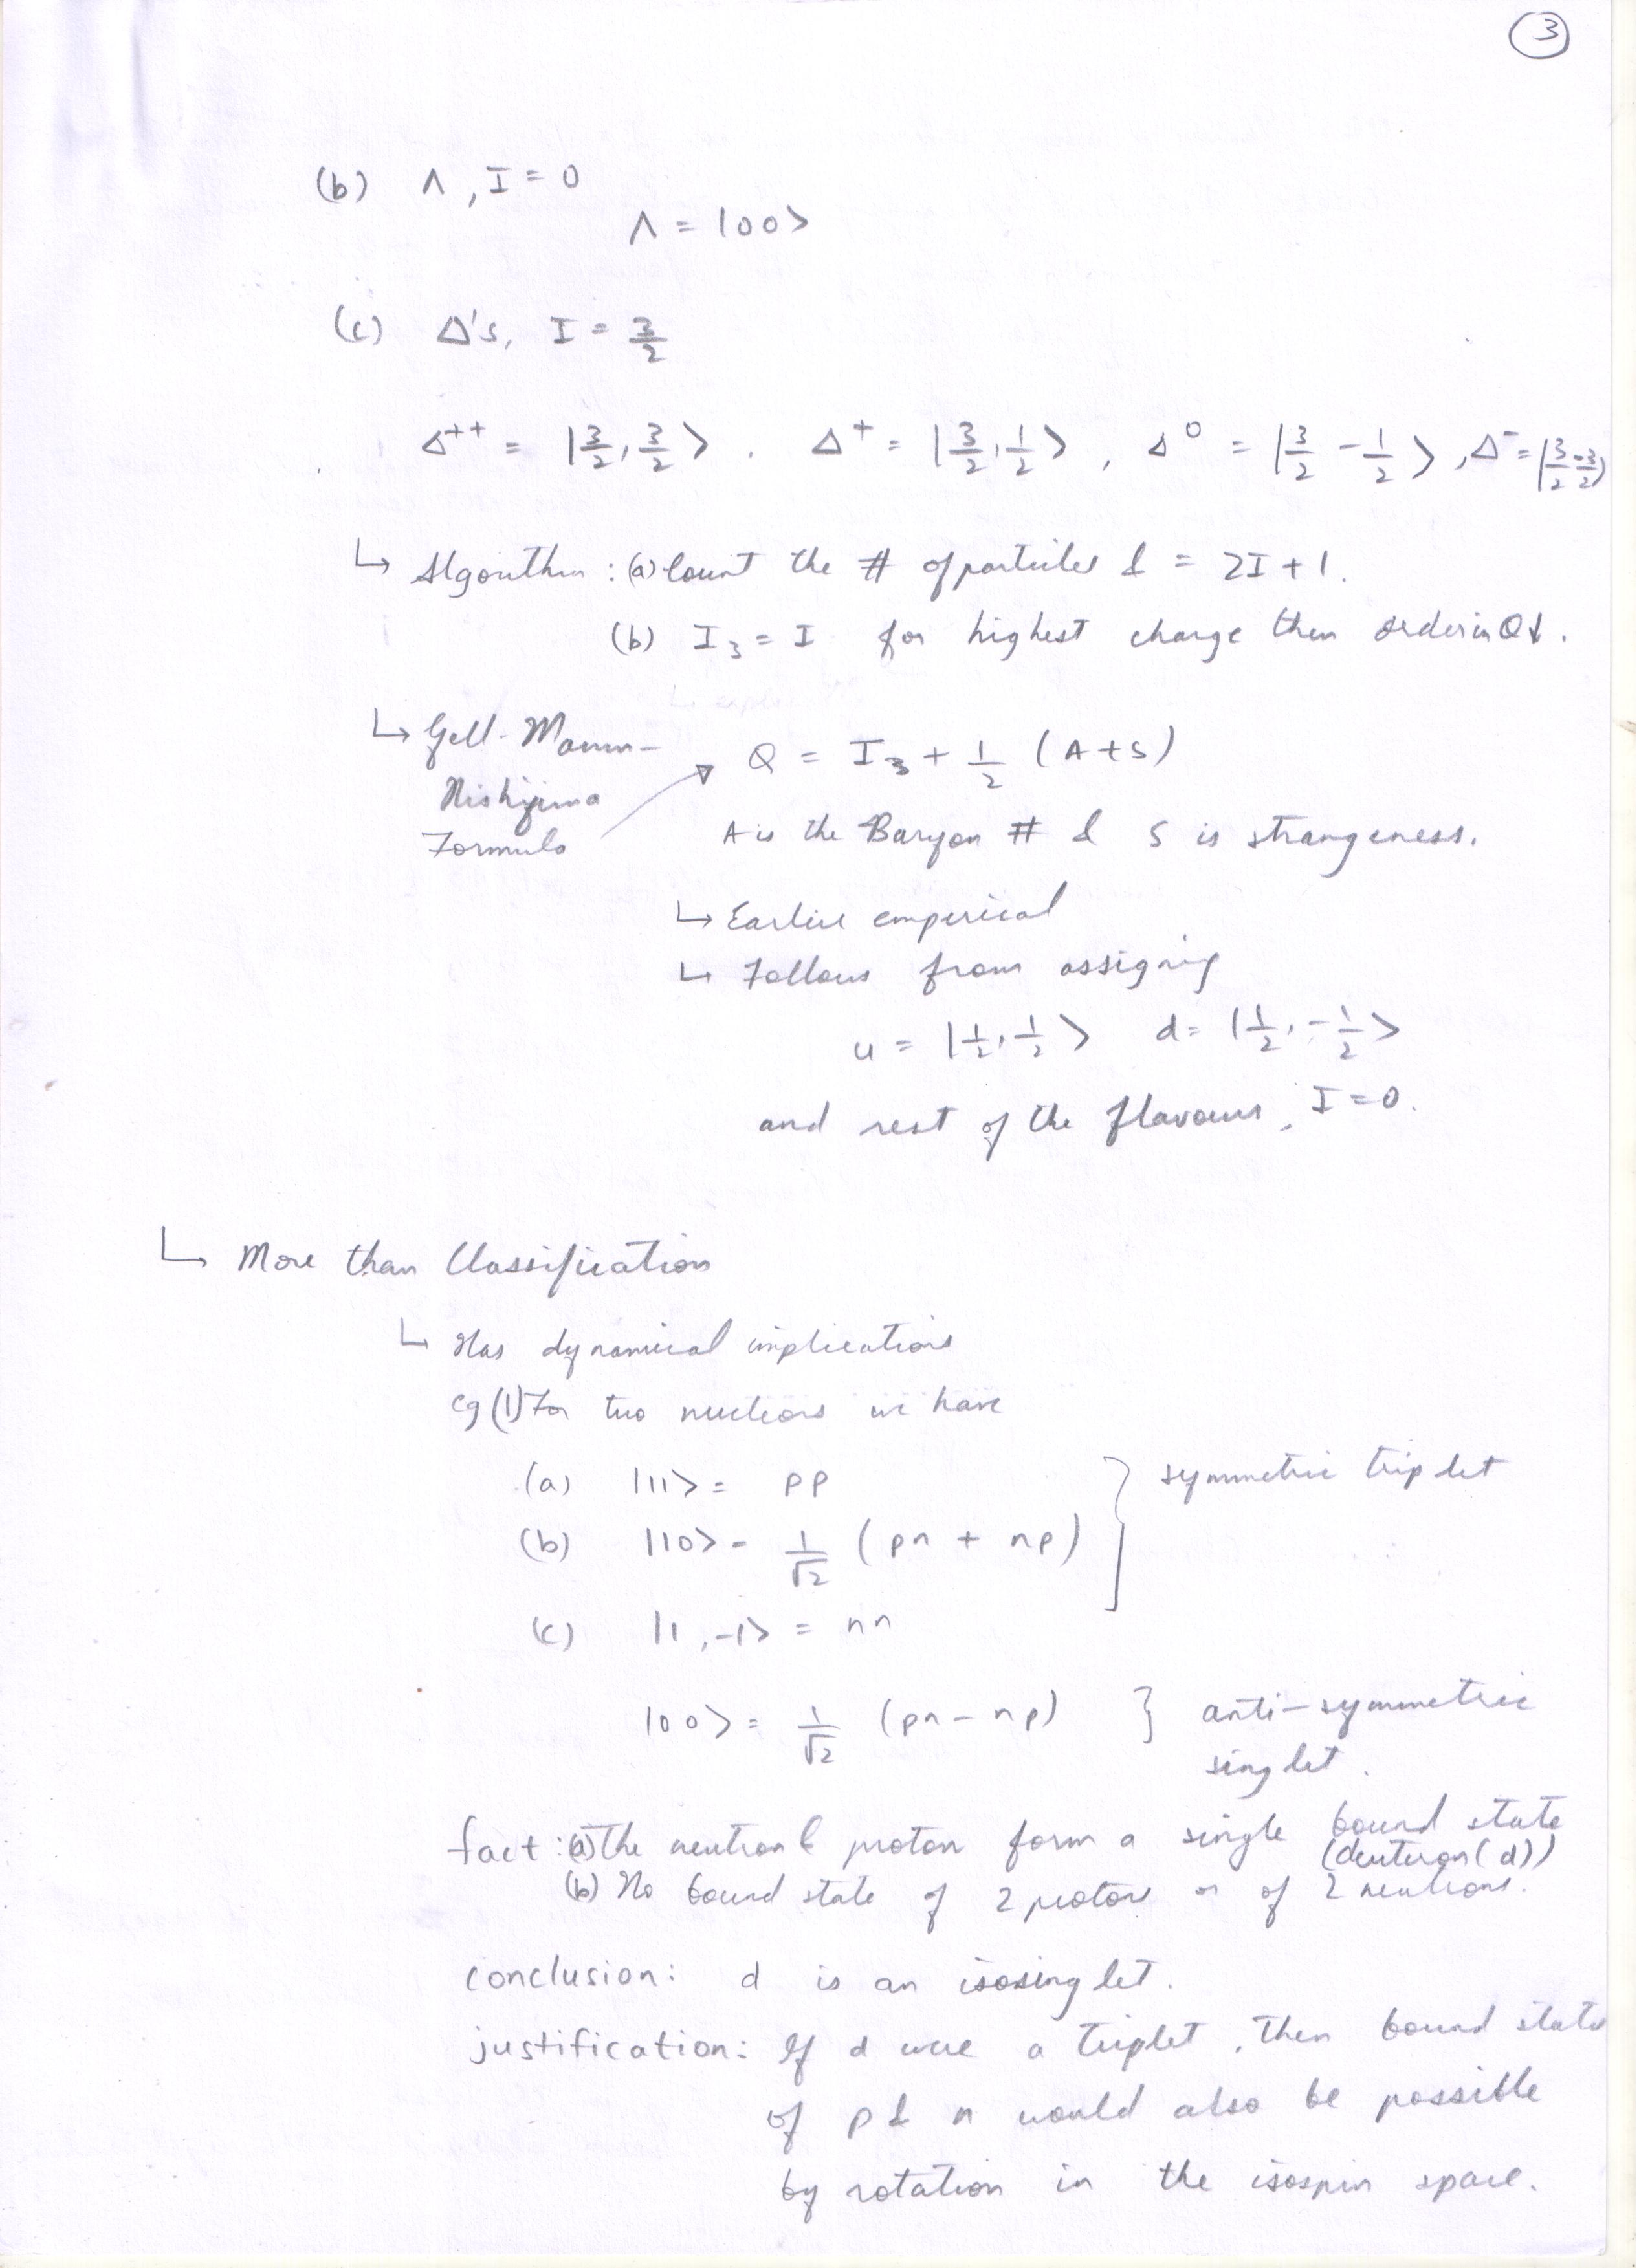 3
(b) Λ, I = 0
Λ = |00>
(c) Δ's, I = 3/2
Δ++ = |3/2, 3/2>, Δ+ = |3/2, 1/2>, Δ0 = |3/2 -1/2>, Δ- = |3/2 -3/2>
↳ Algorithm : (a) Count the # of particles & = 2I+1.
(b) I3 = I for highest charge then order in Q↓.
↳ Gell-Mann-
Nishijima
Formula
Q = I3 + 1/2 (A+S)
A is the Baryon # & S is strangeness.
↳ Earlier emperical
↳ Follows from assigning
u = |1/2, 1/2> d = |1/2, -1/2>
and rest of the flavours, I = 0.
↳ More than Classification
↳ Has dynamical implications
eg (1) For two nucleons we have
(a) |11> = pp
(b) |10> = 1/√2 (pn + np) } symmetric triplet
(c) |1, -1> = nn
|00> = 1/√2 (pn - np) } anti-symmetric
singlet.
fact : (a) The neutron & proton form a single bound state
(deuteron (d))
(b) No bound state of 2 protons or of 2 neutrons.
conclusion: d is an isosinglet.
justification: If d were a triplet, then bound state
of p & n would also be possible
by rotation in the isospin space.